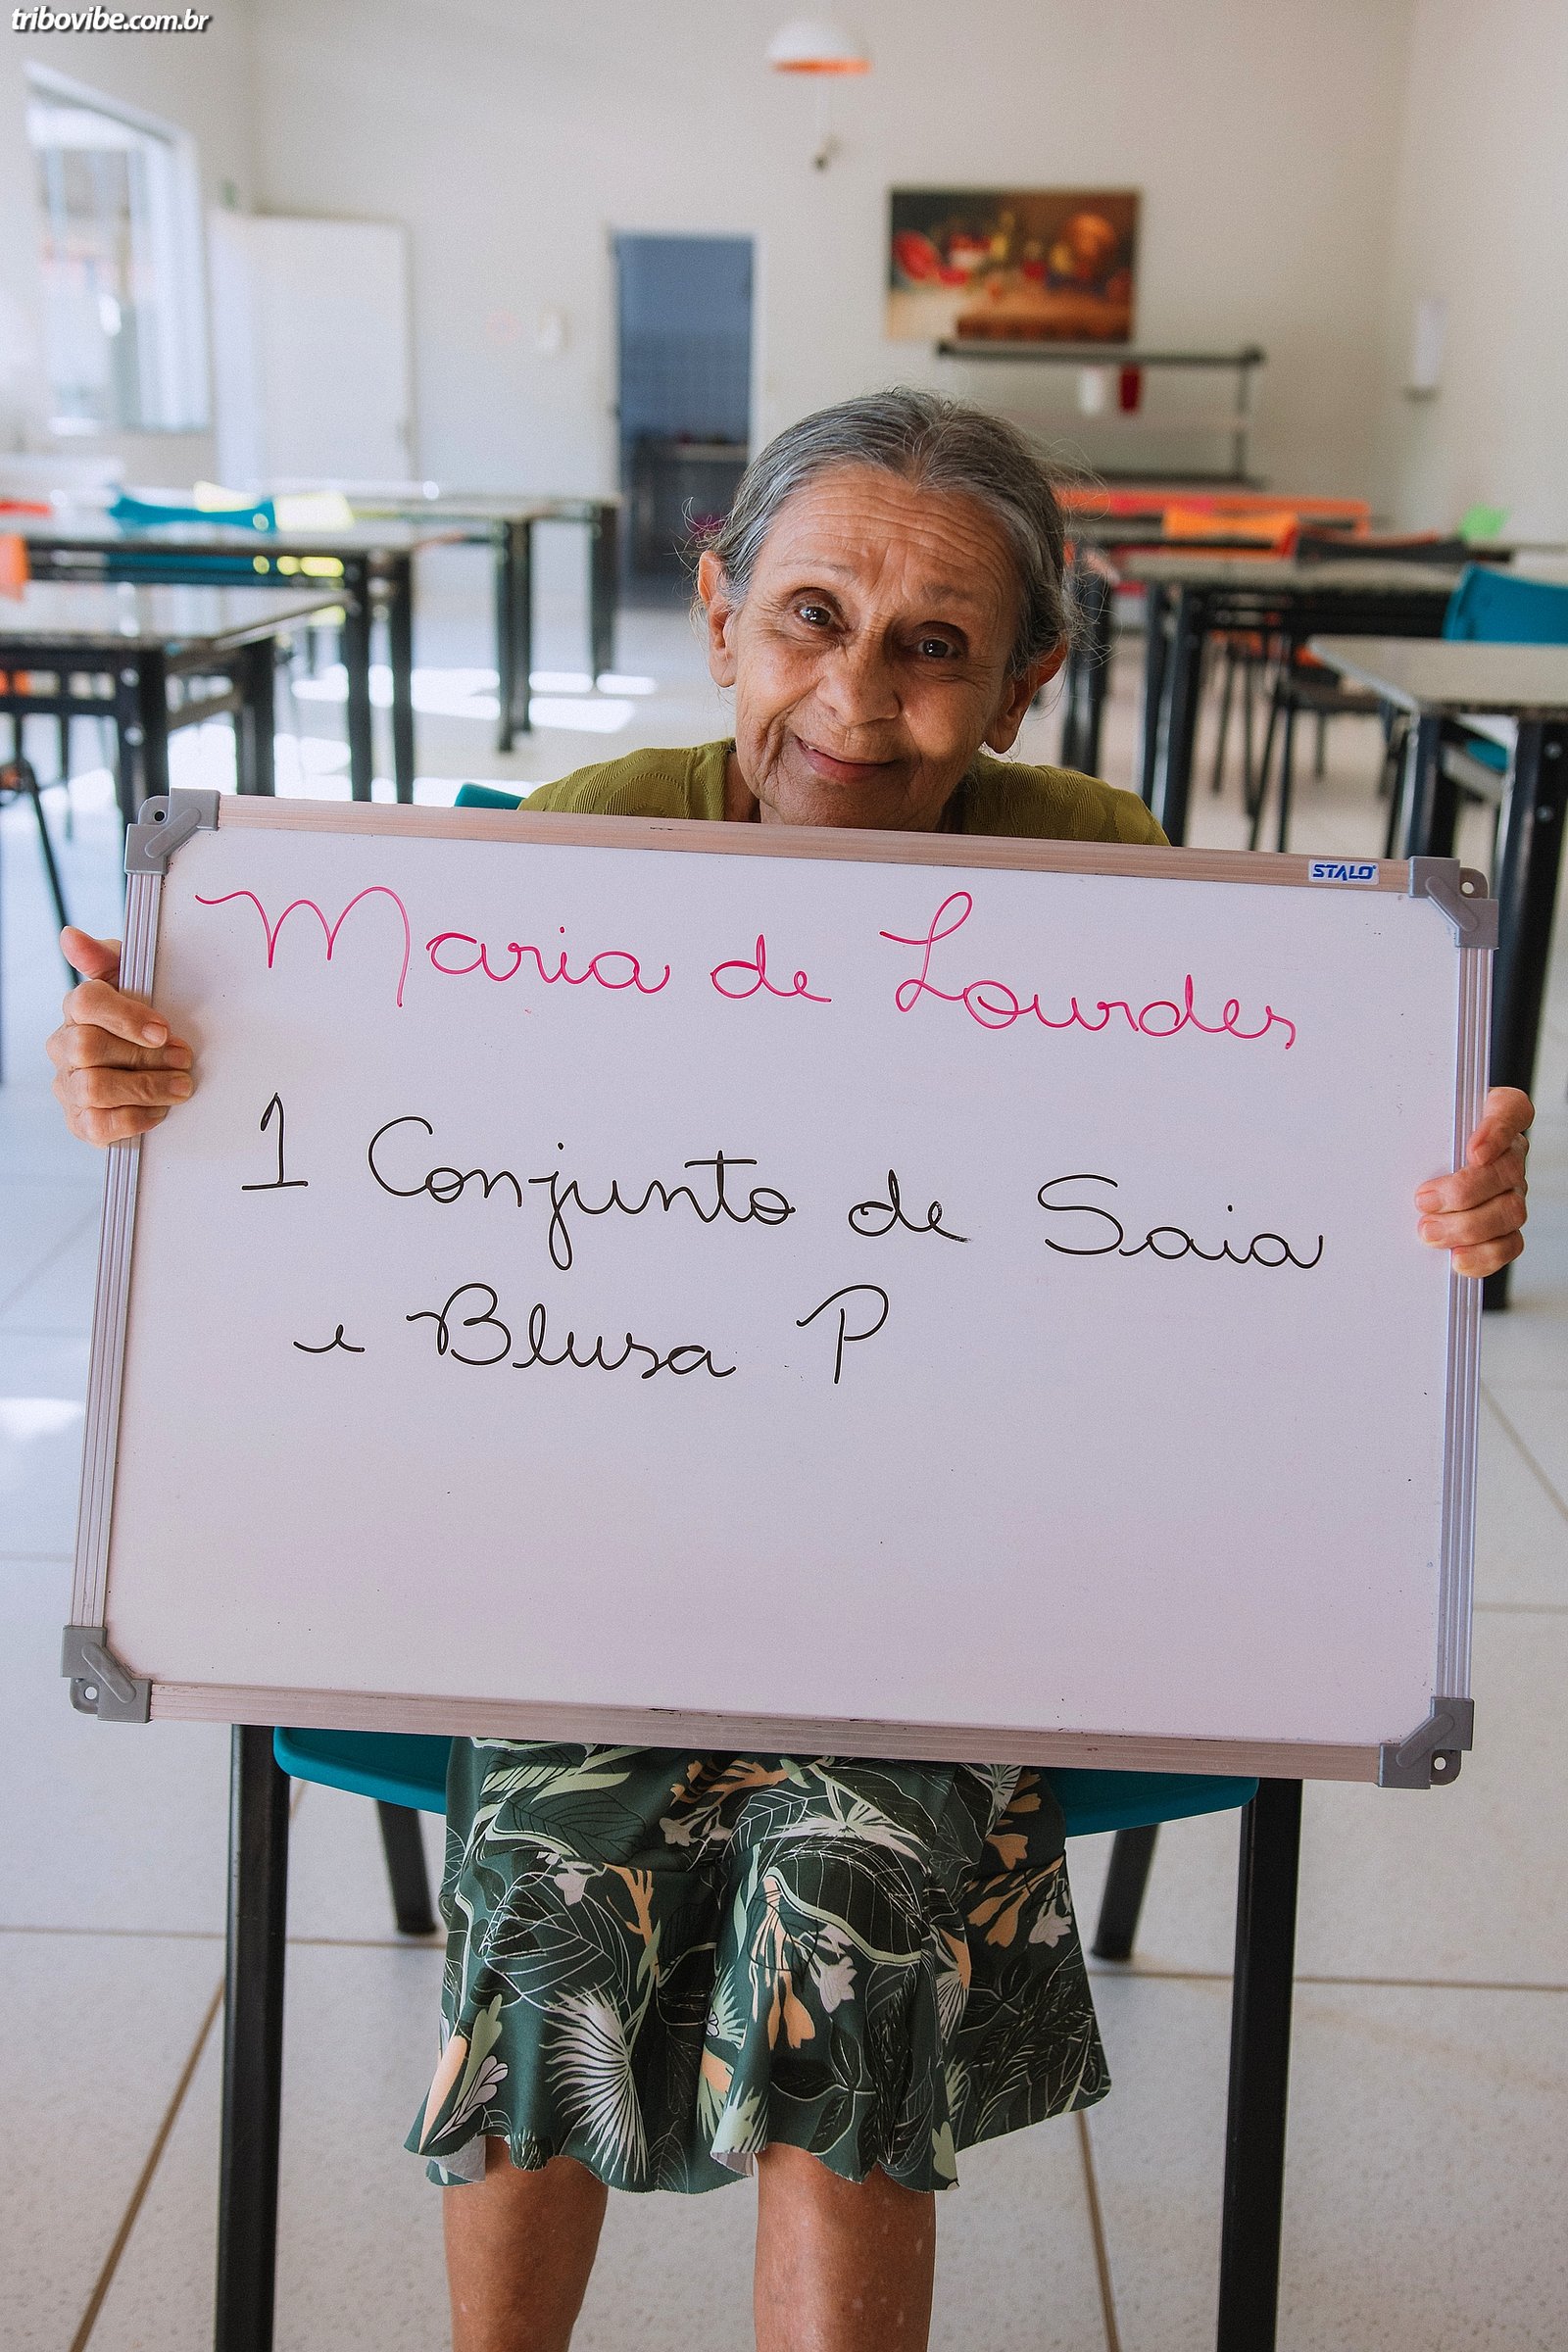 tribovibe.com.br
STALO
Maria de Lourdes
1 Conjunto de Saia
e Blusa P